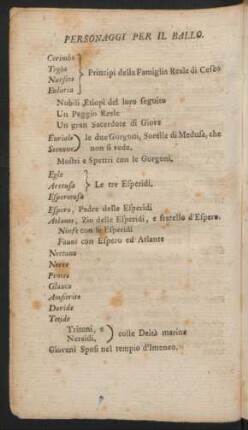 PERSONAGGI PER IL BALLO.
Corimbo
Tegea
Narsete
Eudoria
} Principi della Famiglia Reale di Cefeo
Nobili Etiopi del loro seguito
Un Paggio Reale
Un gran Sacerdote di Giove
Euriale
Stenone
} le due Gorgoni, Sorelle di Medusa, che
non si vede.
Mostri e Spettri con le Gorgoni.
Egle
Aretusa
Esperetusa
} Le tre Esperidi.
Espero, Padre delle Esperidi
Atlante, Zio delle Esperidi, e fratello d'Espero.
Ninfe con le Esperidi
Fauni con Espero ed Atlante
Nettuno
Nereo
Proteo
Glauco
Anfitrite
Doride
Tetide
Tritoni, e
Nereidi,
} colle Deità marine
Giovani Sposi nel tempio d'Imeneo.